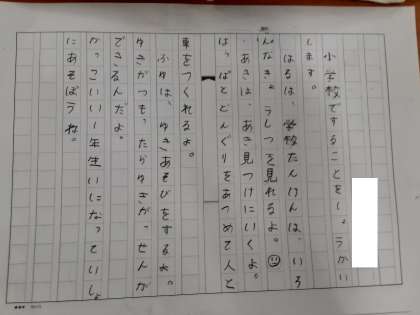 小学校ですることをしょうかい
します。
はるは、学校たんけんは、いろ
んなきょうしつを見れるよ。
あきは、あき見つけにいくよ。
は、ぱとどんぐりをあつめて人と
車をつくれるよ。
ふゆは、ゆきあそびをするね。
ゆきがつも、たらゆきが、せんが
できるんだよ。
か、こいい1年生いになっていし
にあそぼうね。